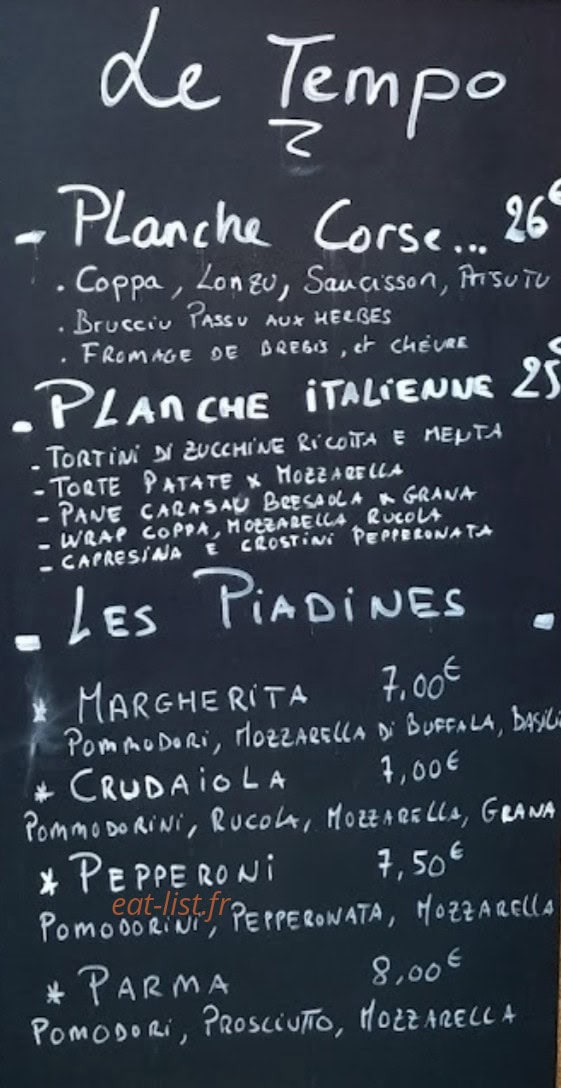 Le Tempo
- Planche Corse... 26€
. Coppa, Lonzu, Saucisson, Prisutu
. Brucciu Passu aux herbes
. Fromage de brebis, et chèvre
- Planche italienne 25€
- Tortini di zucchine ricotta e menta
- Torte patate x mozzarella
- Pane carasau bresaola x grana
- Wrap coppa, mozzarella rucola
- Capresina e crostini pepperonata
- Les Piadines -
* Margherita 7,00€
Pommodori, mozzarella di buffala, basili
* Crudaiola 7,00€
Pommodorini, rucola, mozzarella, grana
* Pepperoni 7,50€
eat-list.fr
Pomodorini, pepperonata, mozzarella
* Parma 8,00€
Pomodori, prosciutto, mozzarella